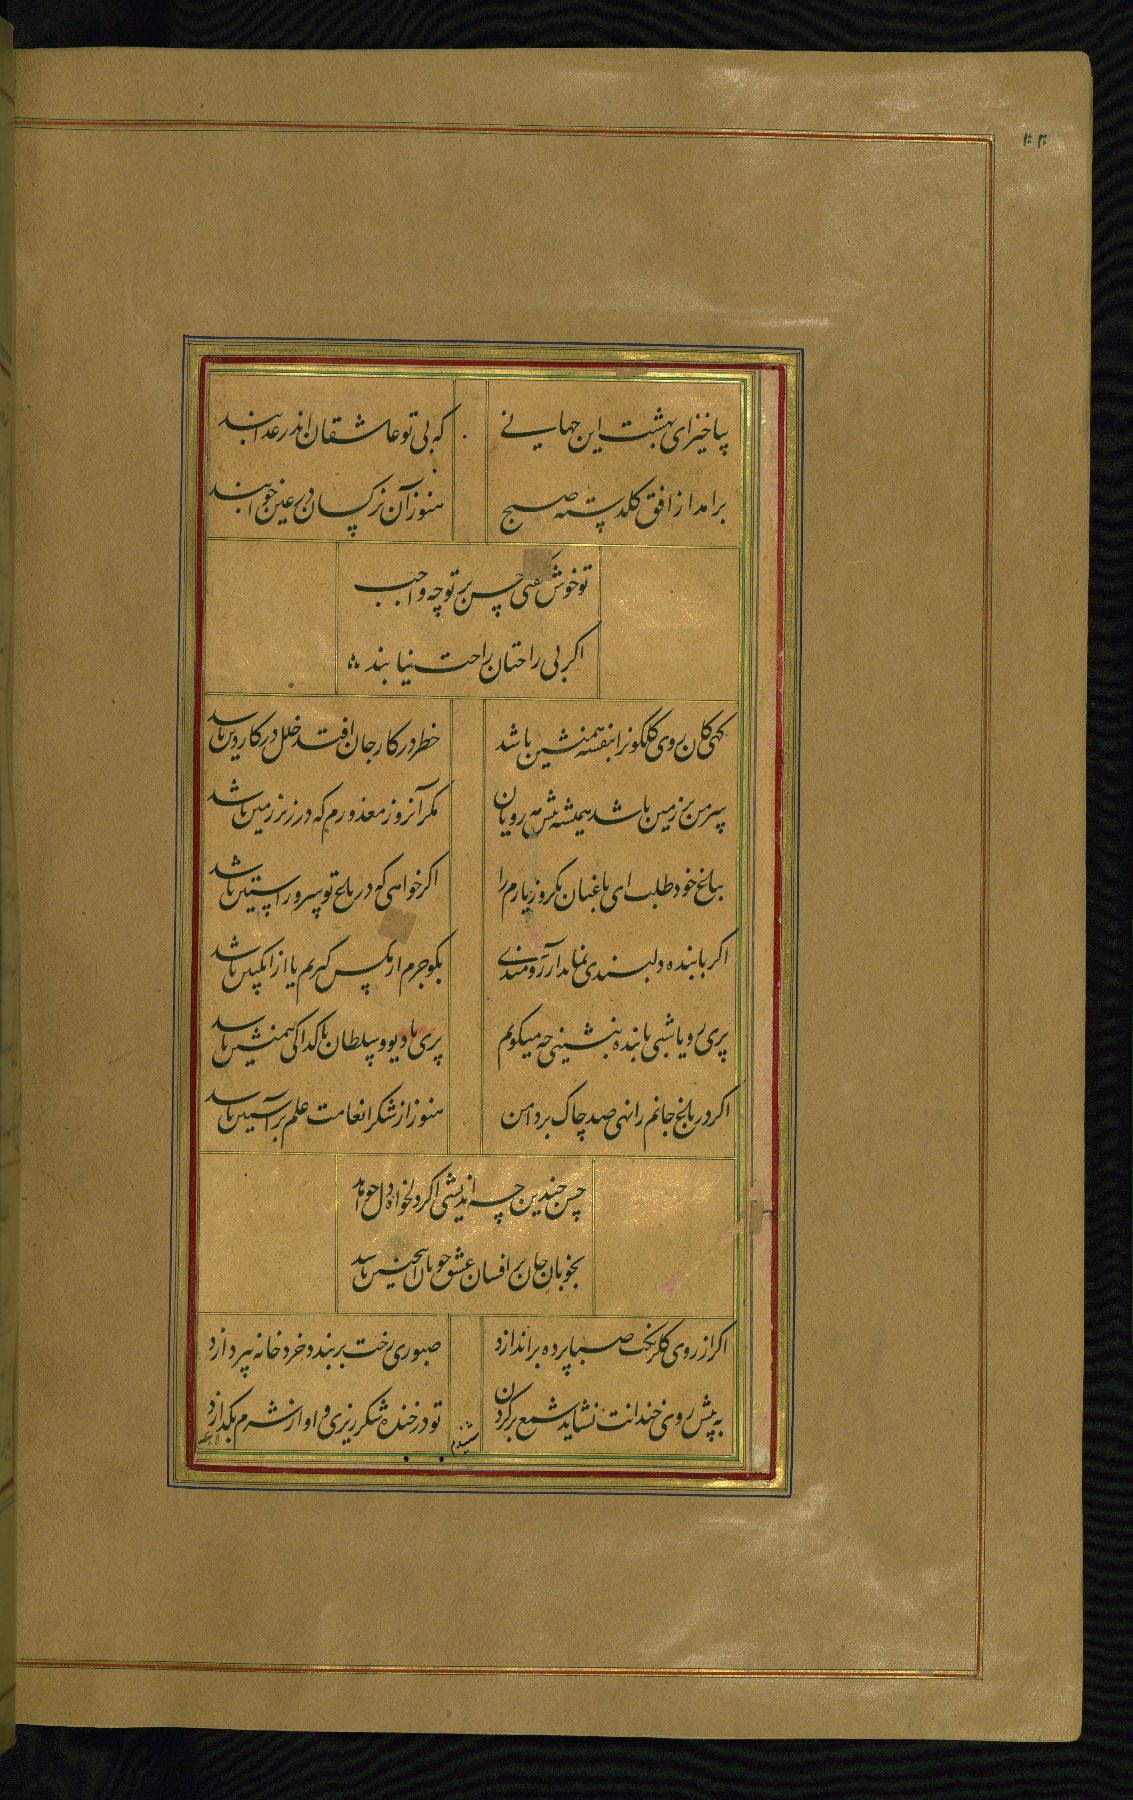 ۱۰۲
بپا خیز ای بهشت این جهانی
که بی تو عاشقان اندر عذابند
برامد از افق کلدسته صبح
هنوز آن نرکسان در عین خوابند
تو خوش خفتی حسن بر تو چه واجب
اکر بی راحتان راحت نیابند
کهی کان روی کلکونرا بنفشه همنشین باشد
خطر در کار جان افتد خلل در کار دین باشد
سر من بر زمین باشد همیشه پیش مه رویان
مکر آنروز معذورم که در زیر زمین باشد
بباغ خود طلب ای باغبان یکروز یارم را
اکر خواهی که در باغ تو سرو راستین باشد
اکر با بنده دلبندی نماید ار آرزومندی
بکو جرم از مکس کیریم یا از انکبین باشد
پری رویا شبی با بنده بنشینی چه میکویم
پری با دیو و سلطان با کدا کی همنشین باشد
اکر در باغ جانم را نهی صد چاک بر دامن
هنوز از شکر انعامت علم بر آستین باشد
حسن چندین چه اندیشی اکر دلخواه دل خواهد
بخوبان جان بر افشان عشق خوبان اینچنین باشد
اکر از روی کلرنکت صبا پرده براندازد
صبوری رخت بربندد خرد خانه بپردازد
به پیش روی خندانت نشاید شمع برکردن
تو در خنده شکر ریزی و او از شرم بکدازد